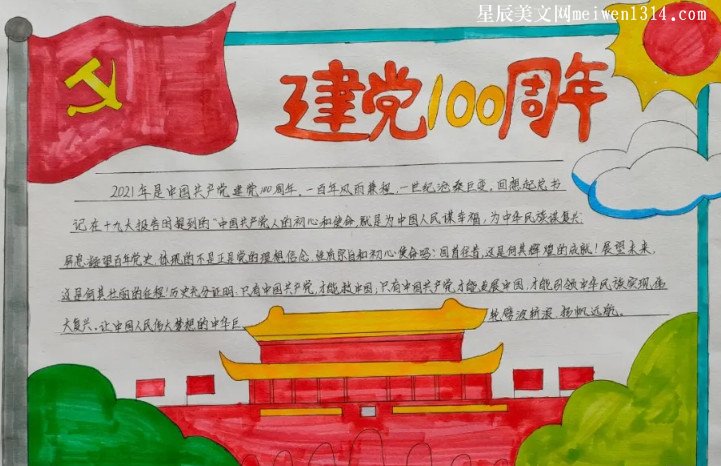 星辰美文网meiwen1314.com
建党100周年
2021年是中国共产党建党100周年，一百年风雨兼程，一世纪沧桑巨变，回想起总书
记在十九大报告时提到的“中国共产党人的初心和使命，就是为中国人民谋幸福，为中华民族谋复兴
屏息凝望百年党史，体现的不是正是党的理想信念、性质宗旨和初心使命吗？回首往昔，这是何其辉煌的成就！展望未来，
这是何其壮丽的征程！历史充分证明：只有中国共产党，才能救中国，只有中国共产党，才能发展中国，才能引领中华民族实现伟
大复兴。让中国人民伟大梦想的中华巨 轮劈波斩浪、扬帆远航。